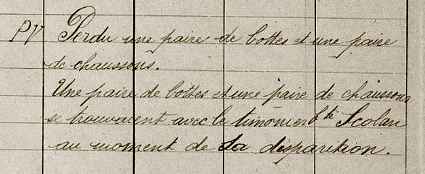 PV Perdu une paire de bottes et une paire
de chaussons.
Une paire de bottes et une paire de chaussons
se trouvaient avec le timonier Scolan
au moment de sa disparition.